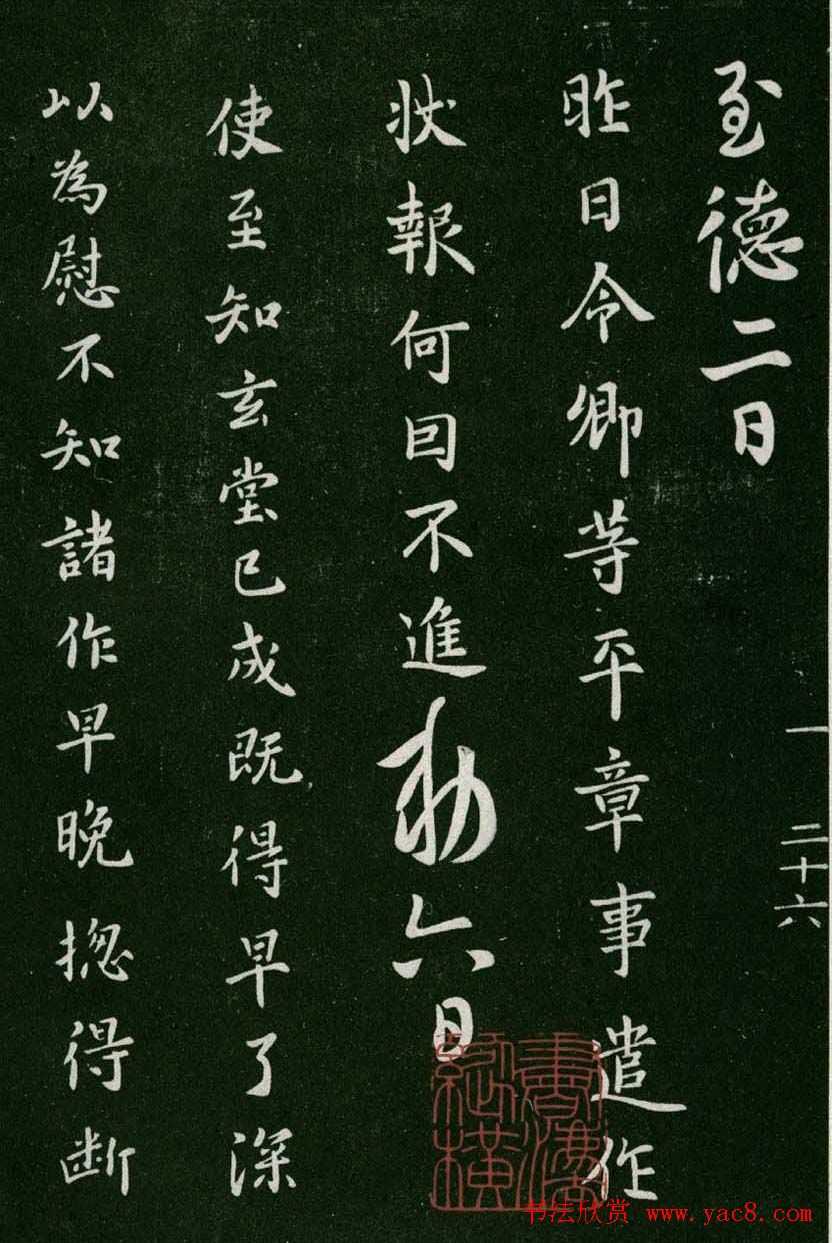 至德二日
昨日令卿等平章事遣作
状報何因不進勅六日
使至知玄堂已成既得早了深
以為慰不知諸作早晚揔得断
一 二十六
书法欣赏 www.yac8.com